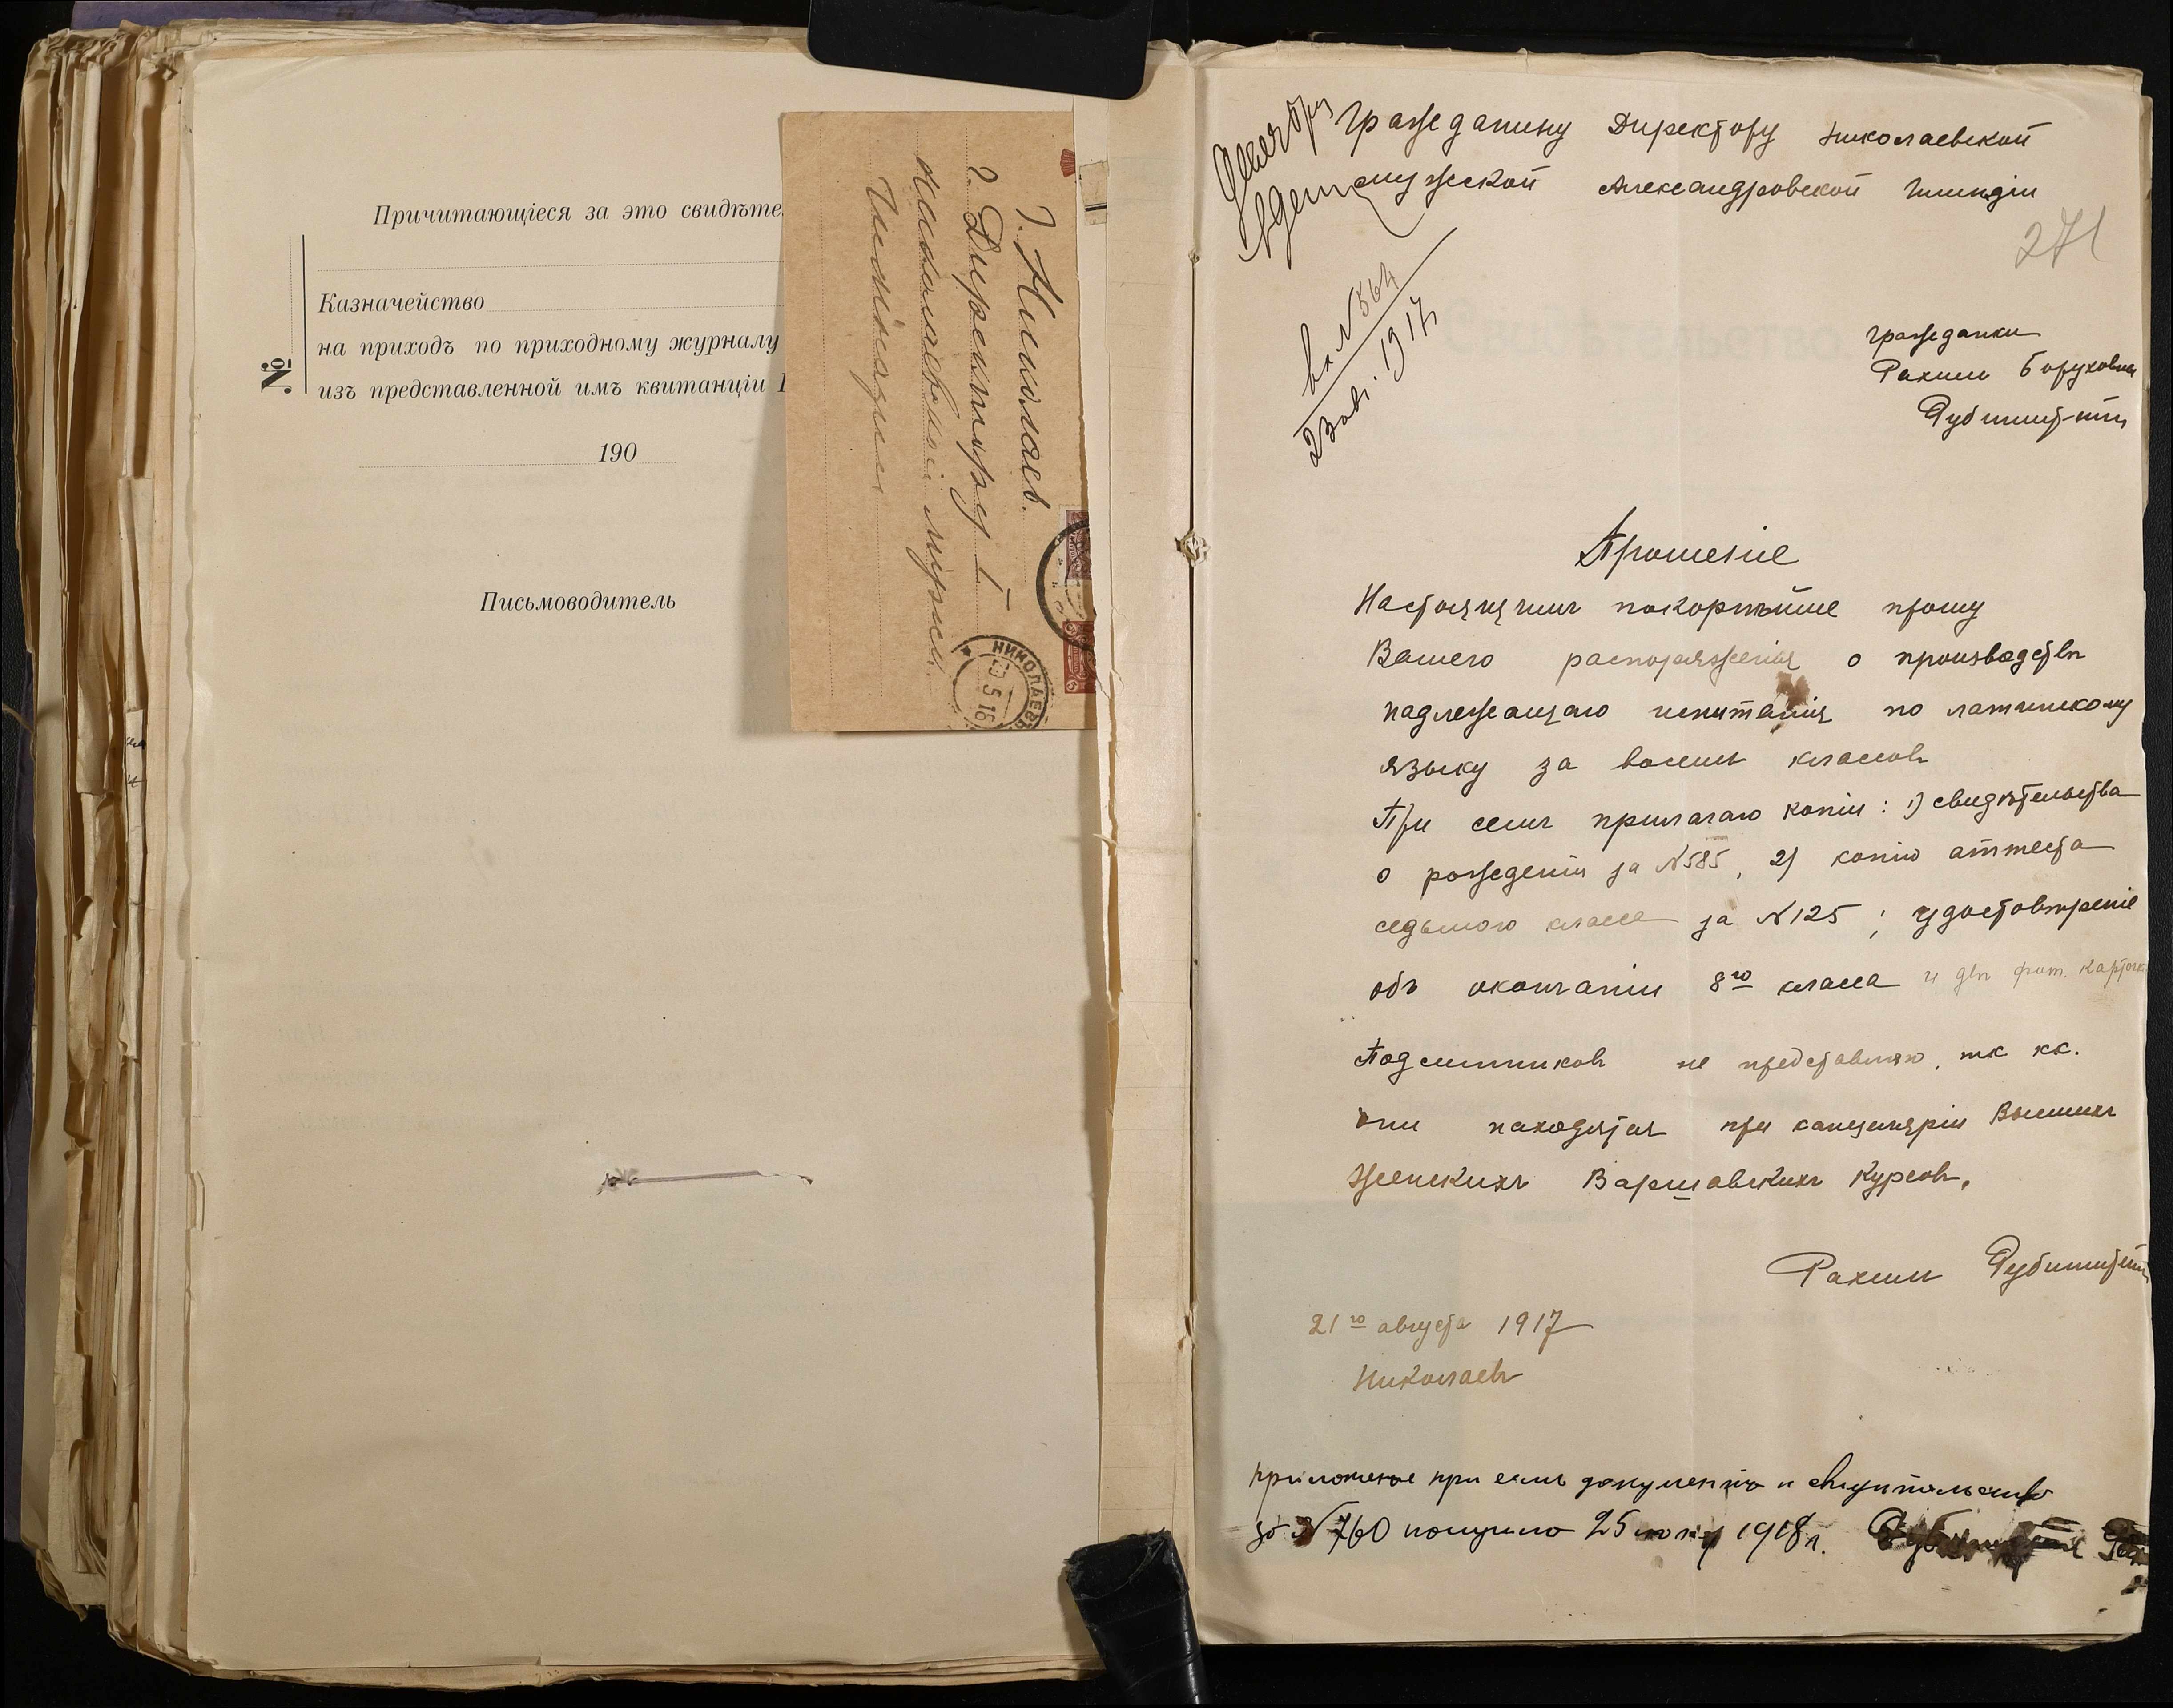 Причитающіеся за это свидѣте
Казначейство
на приходъ по приходному журналу
изъ представленной имъ квитанціи
№
190
Письмоводитель
г. Николаев.
г. Директору I
Николаевской мужск.
Гимназіи
НИКОЛАЕВЪ
5 16
Гражданину Директору Николаевской
мужской Александровской Гимназіи
271
вх. № 564
1917
Гражданки
Рахили Боруховны
Рубинштейнъ
Прошеніе
Настоящимъ покорнѣйше прошу
Вашего распоряженія о производствѣ
надлежащаго испытанія по латинскому
языку за восемь классовъ
При семъ прилагаю копіи: 1) свидѣтельства
о рожденіи за №585, 2) копію аттеста
седьмого класса за №125; удостовѣреніе
объ окончаніи 8го класса и двѣ фот. карточк
Подлинниковъ не представляю, тк кк.
они находятся при канцеляріи Высшихъ
Женскихъ Варшавскихъ Курсовъ.
Рахиль Рубинштейнъ
21го августа 1917
Николаевъ
приложенные при семъ документы и свидѣтельство
за №760 получила 25 1918г.